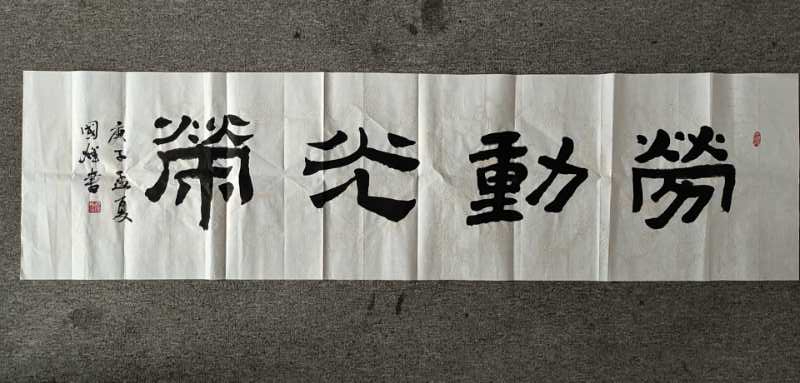 勞動光榮
庚子孟夏
國輝書